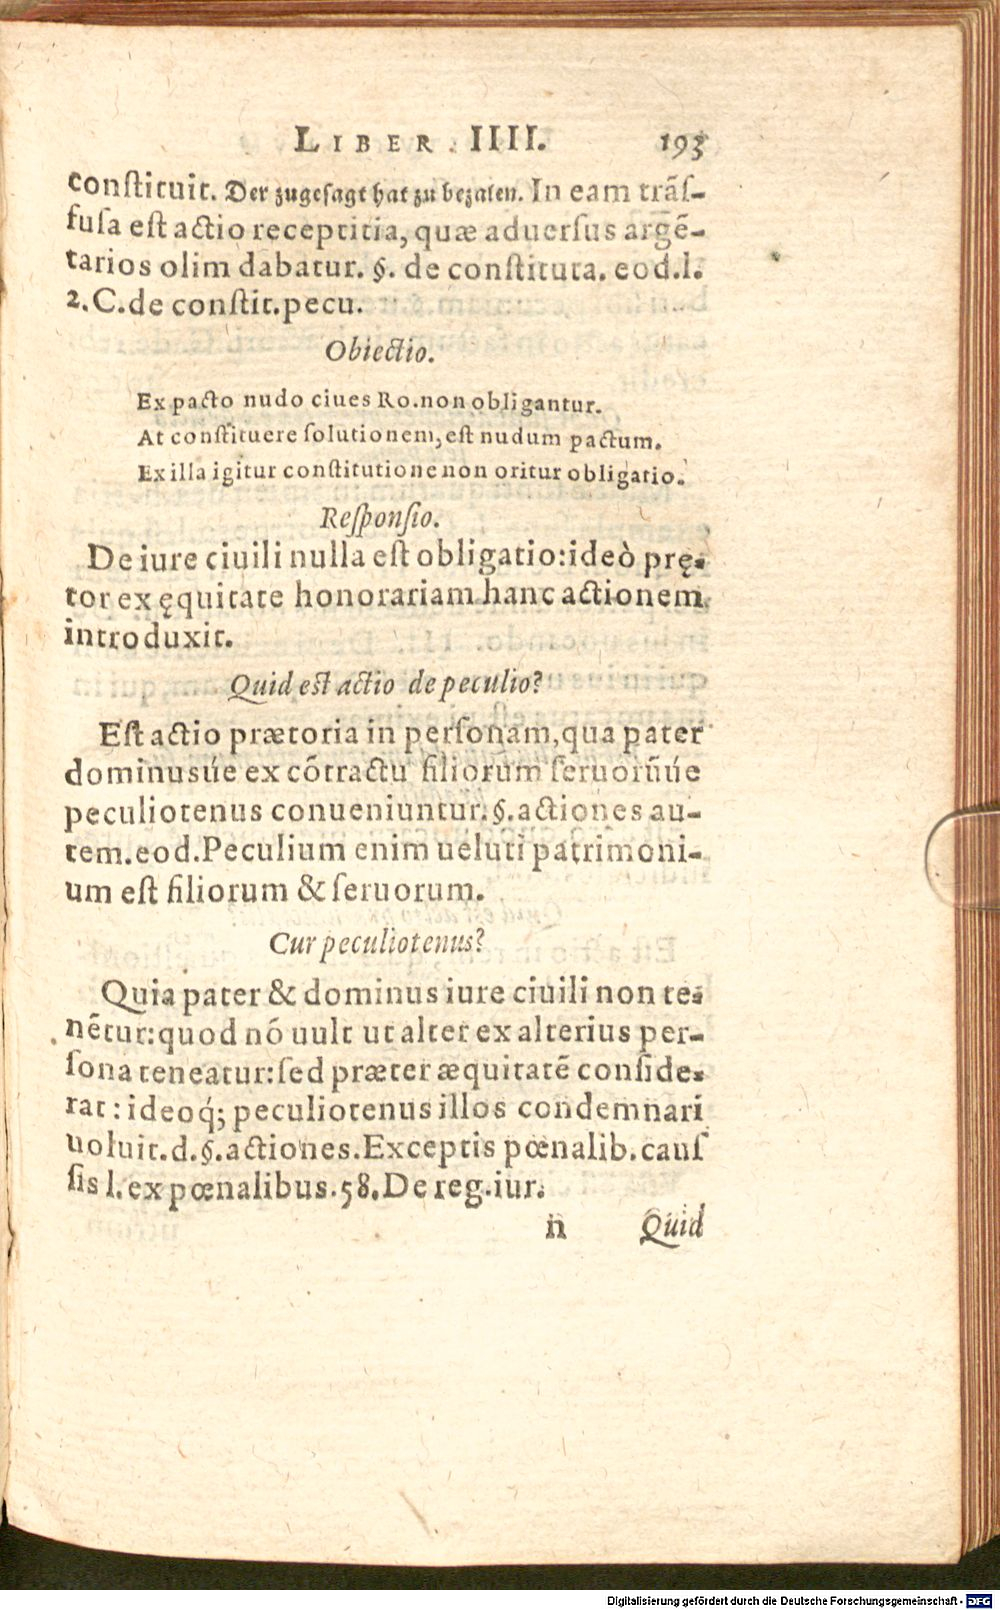 LIBER IIII. 193
constituit. Der zugesagt hat zu bezalen. In eam trãs-
fusa est actio receptitia, quæ aduersus argẽ-
tarios olim dabatur. §. de constituta. eod. l.
2. C. de constit. pecu.
Obiectio.
Ex pacto nudo ciues Ro. non obligantur.
At constituere solutionem, est nudum pactum.
Ex illa igitur constitutione non oritur obligatio.
Responsio.
De iure ciuili nulla est obligatio: ideò prę-
tor ex ęquitate honorariam hanc actionem
introduxit.
Quid est actio de peculio?
Est actio prætoria in personam, qua pater
dominusúe ex cõtractu filiorum seruorũúe
peculiotenus conueniuntur. §. actiones au-
tem. eod. Peculium enim ueluti patrimoni-
um est filiorum & seruorum.
Cur peculiotenus?
Quia pater & dominus iure ciuili non te-
nẽtur: quod nõ uult ut alter ex alterius per-
sona teneatur: sed præter æquitatẽ conside-
rat: ideoq́; peculiotenus illos condemnari
uoluit. d. §. actiones. Exceptis pœnalib. caus
sis l. ex pœnalibus. 58. De reg. iur.
n Quid
Digitalisierung gefördert durch die Deutsche Forschungsgemeinschaft - DFG